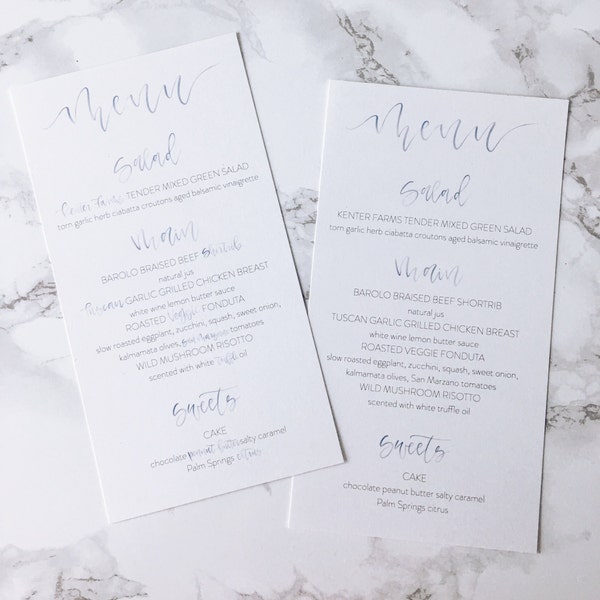 menu
Salad
Kenter Farms TENDER MIXED GREEN SALAD
torn garlic herb ciabatta croutons aged balsamic vinaigrette
main
BAROLO BRAISED BEEF Shortrib
natural jus
Tuscan GARLIC GRILLED CHICKEN BREAST
white wine lemon butter sauce
ROASTED Veggie FONDUTA
slow roasted eggplant, zucchini, squash, sweet onion,
kalmamata olives, San Marzano tomatoes
WILD MUSHROOM RISOTTO
scented with white truffle oil
Sweets
CAKE
chocolate peanut butter salty caramel
Palm Springs citrus
menu
Salad
KENTER FARMS TENDER MIXED GREEN SALAD
torn garlic herb ciabatta croutons aged balsamic vinaigrette
main
BAROLO BRAISED BEEF SHORTRIB
natural jus
TUSCAN GARLIC GRILLED CHICKEN BREAST
white wine lemon butter sauce
ROASTED VEGGIE FONDUTA
slow roasted eggplant, zucchini, squash, sweet onion,
kalmamata olives, San Marzano tomatoes
WILD MUSHROOM RISOTTO
scented with white truffle oil
Sweets
CAKE
chocolate peanut butter salty caramel
Palm Springs citrus